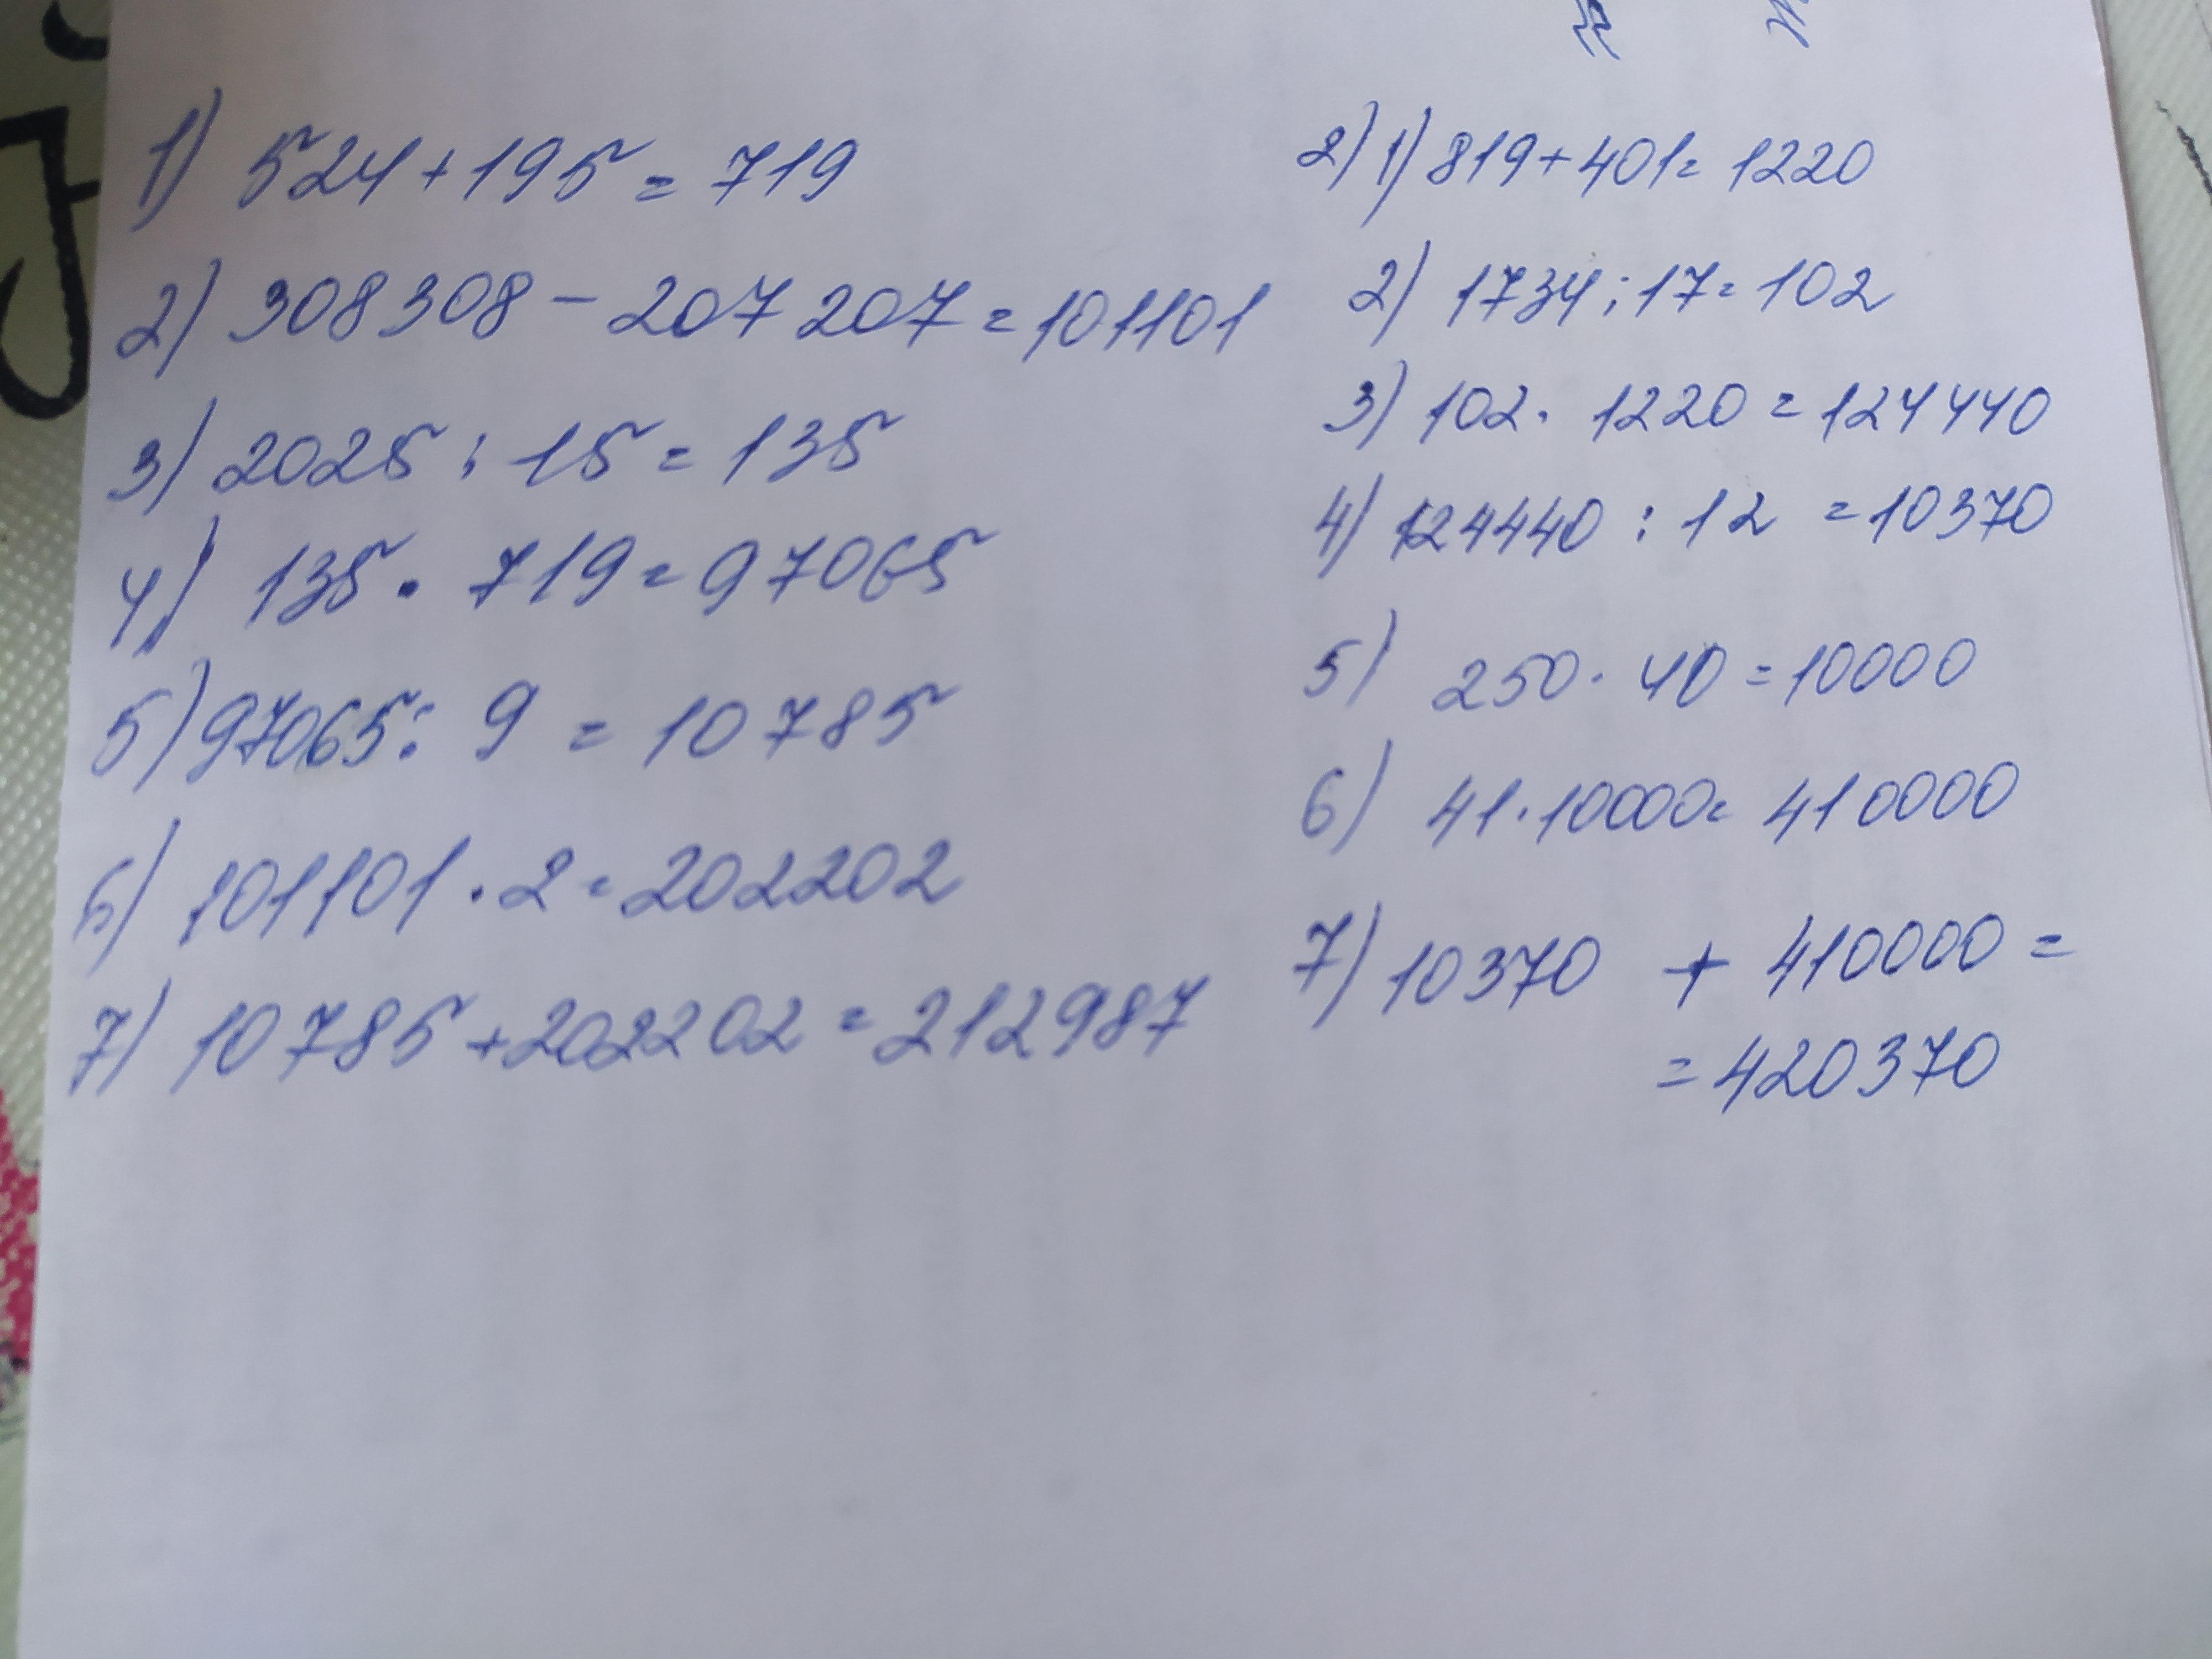 1) 524+195=719
2) 308308-207207=101101
3) 2025:15=135
4) 135·719=97065
5) 97065:9=10785
6) 101101·2=202202
7) 10785+202202=212987
2) 1) 819+401=1220
2) 1734:17=102
3) 102·1220=124440
4) 124440:12=10370
5) 250·40=10000
6) 41·10000=410000
7) 10370+410000=
=420370